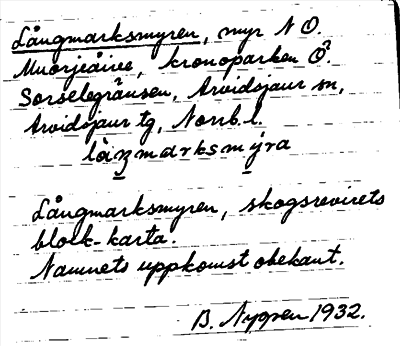 Långmarksmyren, myr N O.
Muorjeåive, kronoparken Ö.
Sorselegränsen, Arvidsjaur sn,
Arvidsjaur tg, Norrb. l.
làŋmarksmýra
Långmarksmyren, skogsrevirets
block-karta.
Namnets uppkomst obekant.
B. Nygren 1932.